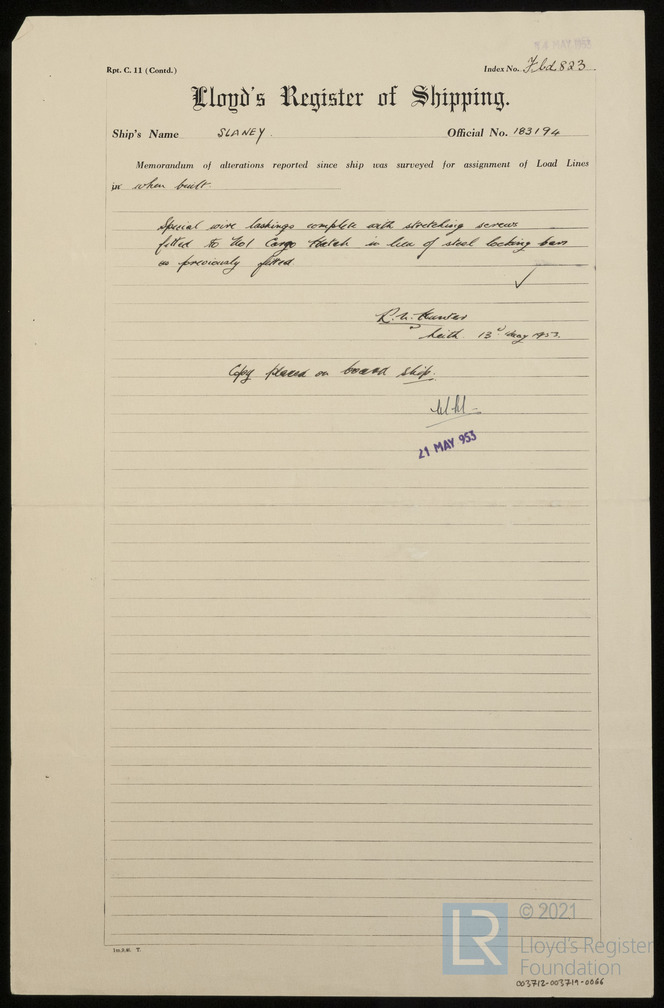 Rpt. C. 11 (Contd.)
Index No. Fbd 823
Lloyd's Register of Shipping.
Ship's Name SLANEY. Official No. 183194
Memorandum of alterations reported since ship was surveyed for assignment of Load Lines
in when built
Special wire lashings complete with stretching screws
fitted to No1 Cargo Hatch in lieu of steel locking bars
as previously fitted
✓
Hunter
Leith 13th May 1953.
Copy placed on board ship.
21 MAY 953
© 2021
LR
Lloyd's Register
Foundation
003712-003719-0066